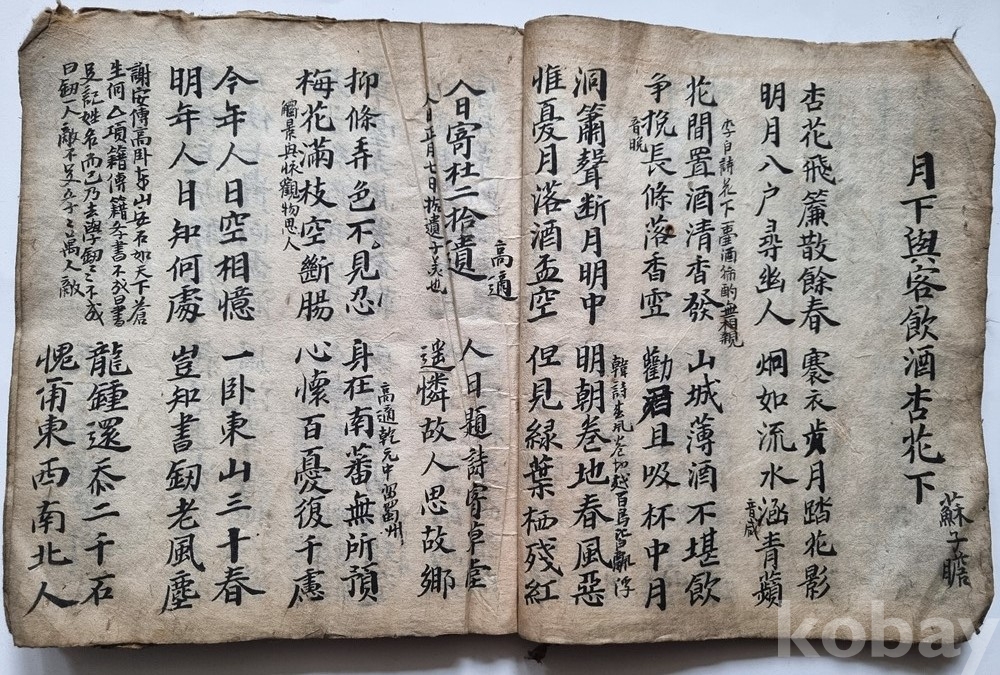 月下與客飲酒杏花下
蘇子瞻
杏花飛簾散餘春 褰衣步月踏花影
明月入戶尋幽人 炯如流水涵青蘋
音咸
李白詩花下一壺酒獨酌無相親
花間置酒清香發 山城薄酒不堪飲
争挽長條落香雪 勸君且吸杯中月
音晩
洞簫聲断月明中 明朝卷地春風惡
惟憂月落酒盃空 但見緑葉栖残紅
人日寄杜二拾遺
高適
人日正月七日拾遺子美也
人日題詩寄草堂
遥憐故人思故鄉
抑條弄色不見忍 身在南蕃無所預
高適乾元中㽞蜀州
梅花滿枝空斷腸 心懷百憂復千慮
觸景與懷觀物思人
今年人日空相憶 一卧東山三十春
明年人日知何處 豈知書釰老風塵
謝安傳高卧東山安石如天下蒼
生何 項籍傳籍 學書不成曰書
足記姓名而已乃去學釰又不成
曰釰一人敵不足 學万人敵
龍鍾還忝二千石
愧甭東西南北人
kobay